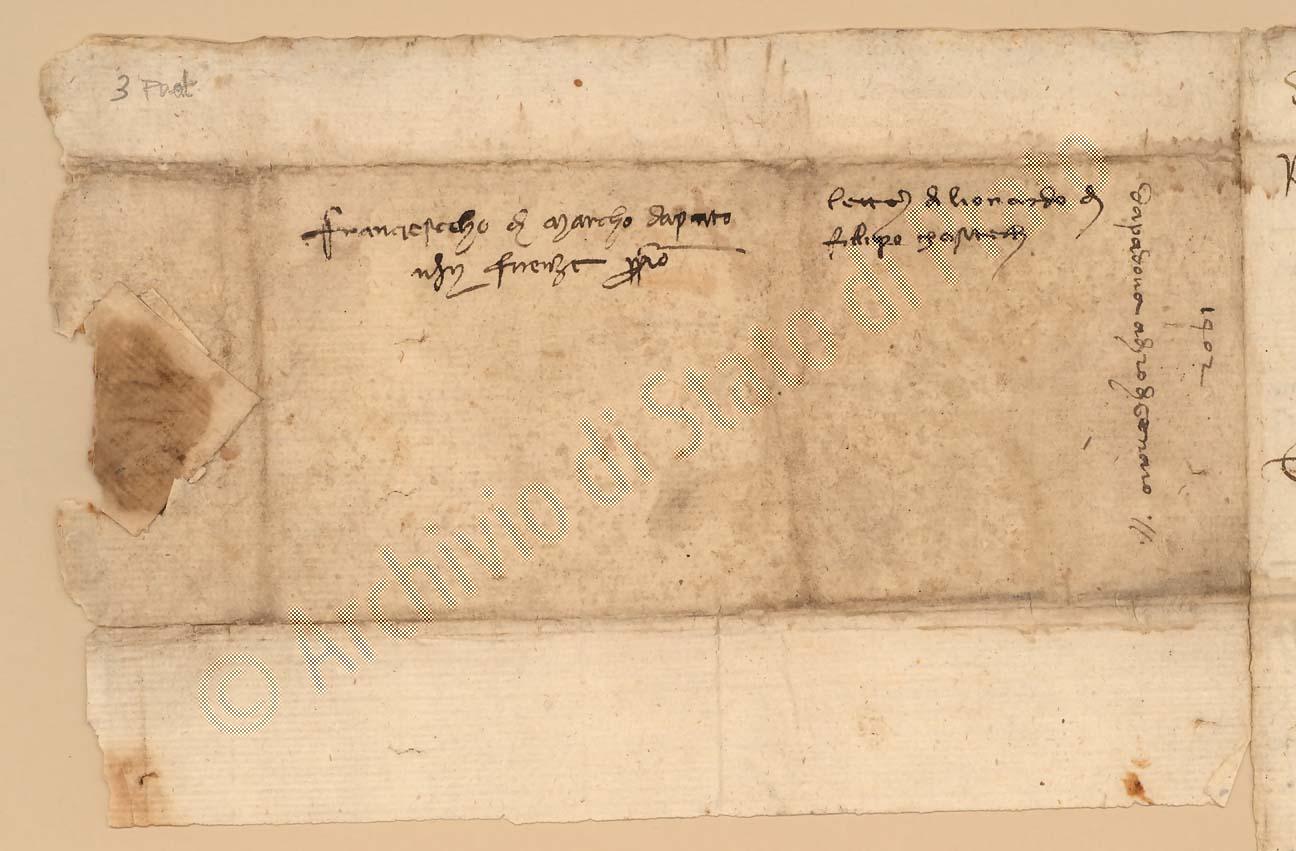 3 Prat
Franciescho di Marcho da Prato
in Firenze propio
lettera di lionardo di
filippo
da padova a dì 20 di gienaio
1402
© Archivio di Stato di Prato